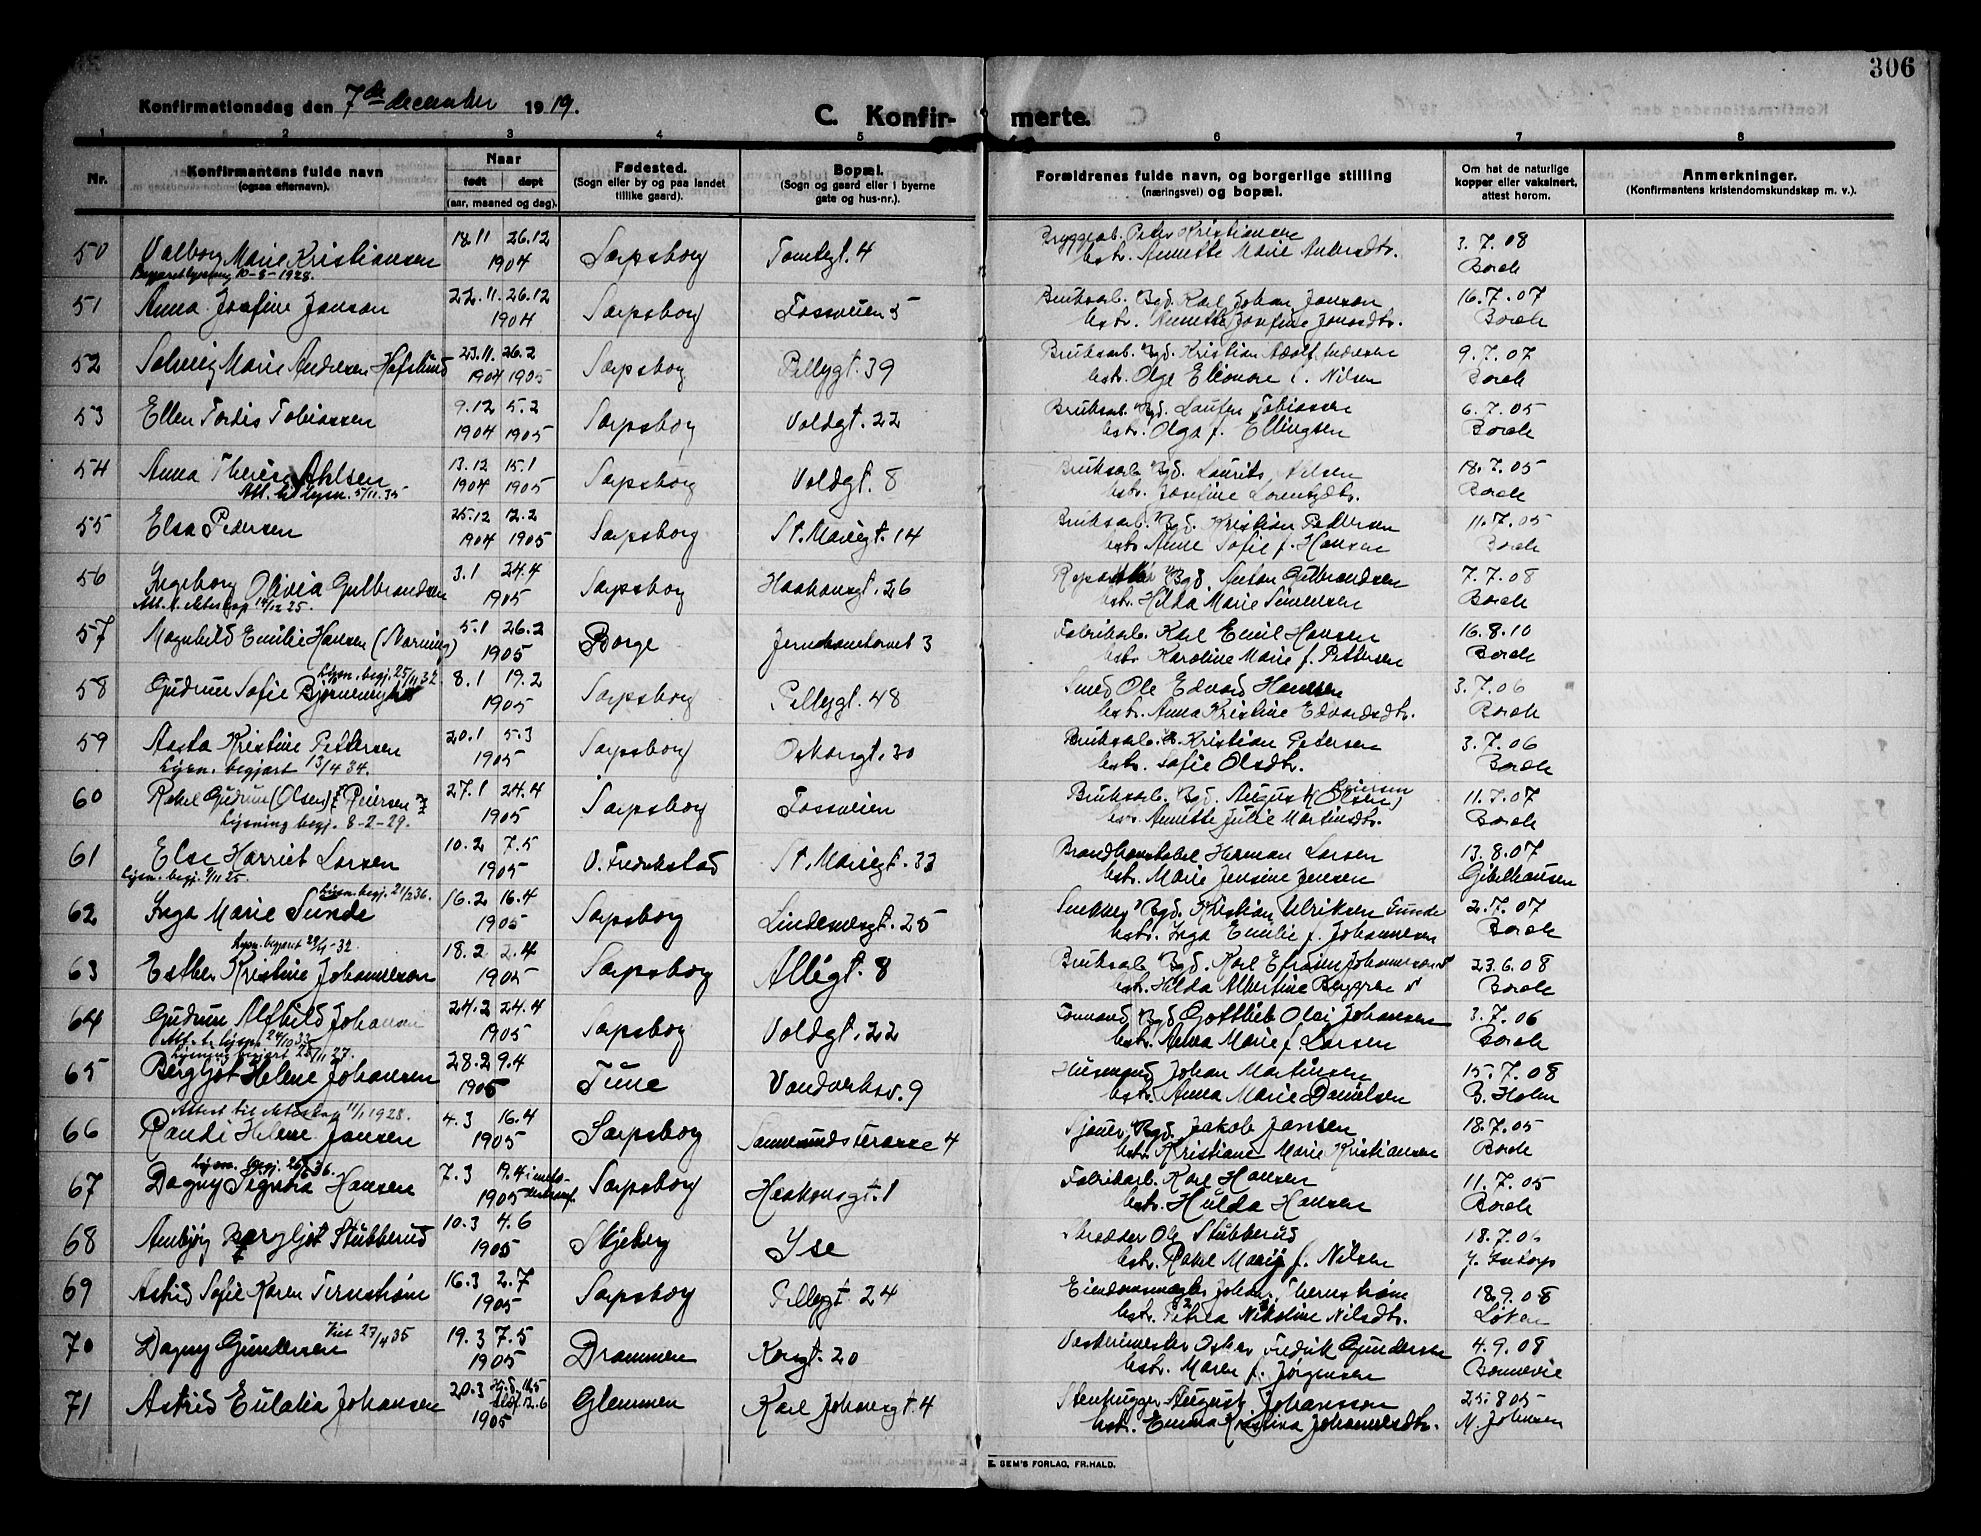 306
Konfirmationsdag den 7de december 1919.
C. Konfir- merte.
1 2 3 4 5 6 7 8
Nr.
Konfirmantens fulde navn
(ogsaa efternavn).
Naar
født døpt
(aar, maaned og dag).
Fødested.
(Sogn eller by og paa landet
tillike gaard).
Bopæl.
(Sogn og gaard eller i byerne
gate og hus-nr.).
Forældrenes fulde navn, og borgerlige stilling
(næringsvei) og bopæl.
Om hat de naturlige
kopper eller vaksinert,
attest herom.
Anmerkninger.
(Konfirmantens kristendomskundskap m. v.).
50 Valborg Marie Kristiansen 18.11 26.12 Sarpsborg Tomtegt. 4 Bryggeab. Peter Kristiansen 3.7.08
Begjæret lysning 10-8-1928. 1904 hstr. Annette Marie Andersdtr. Borch
51 Anna Josefine Janson 22.11. 26.12 Sarpsborg Fossveien 5 Bruksarb. Bgd. Karl Johan Janson 16.7.07
1904 hstr. Annette Josefine Jonasdtr. Borch
52 Solveig Marie Andresen Hafslund 23.11. 26.2 Sarpsborg Pellygt. 39 Bruksarb. Bgd. Kristian Adolf Andresen 9.7.07
1904 1905 hstr. Olga Eleonore f. Nilsen Borch
53 Ellen Tordis Tobiassen 9.12 5.2 Sarpsborg Voldgt. 22 Bruksarb. Bgd. Laurits Tobiassen 6.7.05
1904 1905 hstr. Olga f. Ellingsen Borch
54 Anna Therese Ahlsen 13.12 15.1 Sarpsborg Voldgt. 8 Bruksarb. Bgd. Laurits Nilsen 18.7.05
Att. til lysn. 5/11.35 1904 1905 hstr. Josefine Lorentzdtr. Borch
55 Elsa Pedersen 25.12 12.2 Sarpsborg St. Mariegt. 14 Bruksarb. Bgd. Kristian Pedersen 11.7.05
1904 1905 hstr. Anne Sofie f. Hansen Borch
56 Ingeborg Olivia Gulbrandsen 3.1 24.4 Sarpsborg Haakonsgt. 26 Bgd. Anton Gulbrandsen 7.7.08
Att. t. ekteskap 14/12 25. 1905 hstr. Hilda Marie Simensen Borch
57 Magnhild Emilie Hansen (Narning) 5.1 26.2 Borge Jernbanetorvet 3 Fabrikarb. Karl Emil Hansen 16.8.10
1905 hstr. Karoline Marie f. Pettersen Borch
Lysn. begj. 25/11 32
58 Gudrun Sofie 8.1 19.2 Sarpsborg Pellygt. 48 Smed Ole Edvard Hansen 3.7.06
1905 hstr. Anna Kristine Edvardsdtr. Borch
59 Aasta Kristine Pettersen 20.1 5.3 Sarpsborg Oskarsgt. 30 Bruksarb. Kristian Petersen 3.7.06
Lysn. begjært 13/4 34. 1905 hstr. Sofie Olsdtr. Borch
60 Rakel Gudrun (Olsen) Reiersen 27.1 24.4 Sarpsborg Fossveien Bruksarb. Bgd. August (Olsen) Reiersen 11.7.07
Lysning begj. 8-2-29. 1905 hstr. Annette Julie Martinsdtr. Borch
61 Else Harriet Larsen 10.2 7.5 V. Fredrikstad St. Mariegt. 33 Brandkonstabel Herman Larsen 13.8.07
Lysn. begj. 9/11 25. 1905 hstr. Marie Jensine Jensen Gibelhausen
Lysn. begj. 21/2 36.
62 Inga Marie Sunde 16.2 16.4 Sarpsborg Lindesnesgt. 25 Snekker Bgd. Kristian Ulriksen Sunde 2.7.07
1905 hstr. Inga Emilie f. Johannesen Borch
Lysn. begjært 29/4-32
63 Esther Kristine Johannesson 18.2 2.4 Sarpsborg Allégt. 8 Bruksarb. Bgd. Karl Efraim Johannesson 23.6.08
1905 hstr. Hilda Albertine Berggren Borch
64 Gudrun Alfhild Johansen 24.2 24.4 Sarpsborg Voldgt. 22 Formand Bgd. Gottlieb Olaf Johansen 3.7.06
Att. t. lysn. 24/10 33 1905 hstr. Anna Marie f. Larsen Borch
Lysning begjært 28/11 27.
65 Bergljot Helene Johansen 28.2 9.4 Tune Vandverksv. 9 Husmand Johan Martinsen 15.7.08
1905 hstr. Anna Marie Danielsen B. Holm
Attest til ekteskap 11/1 1928.
66 Randi Helene Jansen 4.3 16.4 Sarpsborg Sannesundsterasse 4 Sjauer Bgd. Jakob Jansen 18.7.05
1905 hstr. Kristiane Marie Kristiansen Borch
Lysn. begj. 26/6 36.
67 Dagny Signora Hansen 7.3 19.4 i metodistsamf. Sarpsborg Haakonsgt. 1 Fabrikarb. Karl Hansen 11.7.05
1905 hstr. Hulda Hansen Borch
68 Annbjørg Bergljot Stubberud 10.3 4.6 Skjeberg Ise Skrædder Ole Stubberud 18.7.06
1905 hstr. Rakel Marie f. Nilsen
69 Astrid Sofie Karen Ternstrøm 16.3 2.7 Sarpsborg Pellygt. 24 Eiendomsmægler Johan Thernstrøm 18.9.08
1905 hstr. Petrea Nikoline Nilsdtr. Løken
70 Dagny Gundersen Viet 27/4 35 19.3 7.5 Drammen Kongt. 20 Værkmester Oskar Fredrik Gundersen 4.9.08
1905 hstr. Maren f. Jørgensen Bonnevie
71 Astrid Eulalia Johansen 20.3 Hd. 11.5 Glemmen Karl Johansgt. 4 Stenhugger August Johansson 25.8.05
1905 Stadf. 12.6 hstr. Emma Kristina Johannesdtr. M. Johnsen
E. SEM'S FORLAG, FR.HALD.